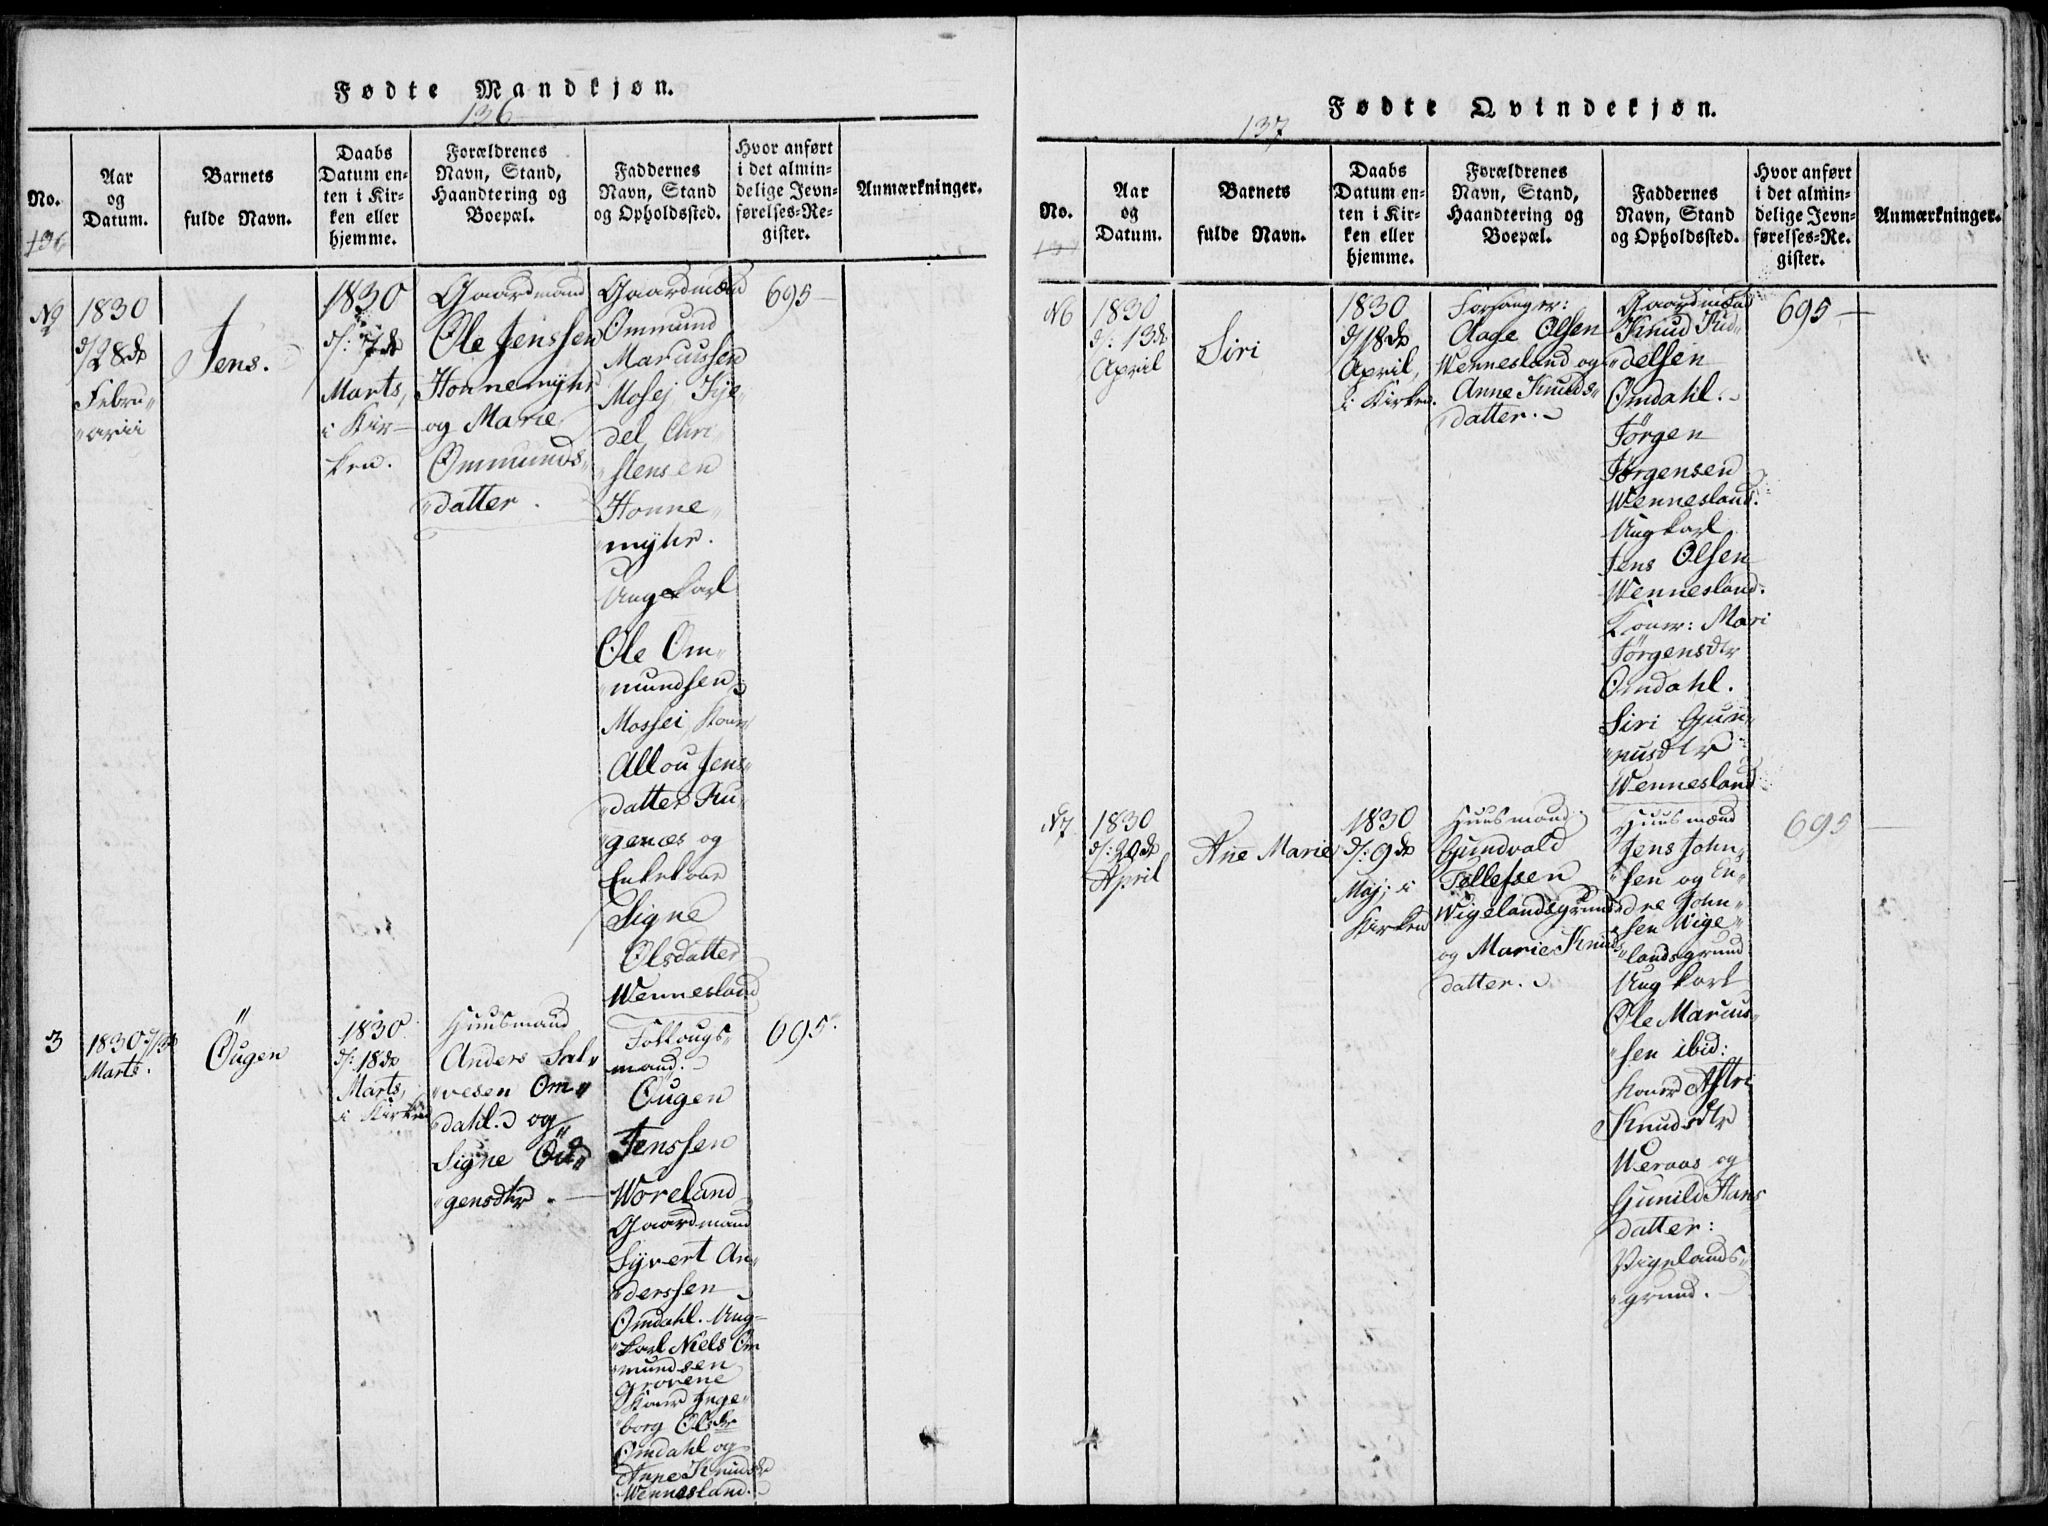 Fødte Mandkjøn.
136
No.
136
Aar
og
Datum.
Barnets
fulde Navn.
Daabs
Datum en-
ten i Kir-
ken eller
hjemme.
Forældrenes
Navn, Stand,
Haandtering og
Boepæl.
Faddernes
Navn, Stand
og Opholdssted.
Hvor anført
i det almin-
delige Jevn-
førelses-Re-
gister.
Anmærkninger.
N 2
1830
d/28de
Febru„
„arii
Jens.
1830
d/: 7de
Marts,
i Kir-
ken.
Gaardmand
Ole Jenssen
Honnemyhr
og Marie
Ommunds„
„datter.
Gaardmænd
Ommund
Marcussen
Mosej, Kje„
del Chri„
„stensen
Honne„
„myhr.
Ungekarl
Ole Om„
„mundsen
Mossei, Koner
Allou Jens„
„datter Ku„
„genæs og
Enkekone
Signe
Olsdatter
Wennesland
695 —
3
1830 d/13de
Marts.
Öugen
1830
d/: 18de
Marts,
i Kirken
Huusmand
Anders Sal„
„vesen Om„
„dahl. og
Signe Öu„
„gensdtr. —
Follougs„
mand.
Öugen
Jenssen
Woreland
Gaardmand
Syvert An„
„derssen
Omdahl. Ung„
„karl Niels Om
„mundsen
Grovene
Koner Inge„
„borg Olsdtr
Omdahl og
Anne Knudsdtr
Wennesland.
695.
Fødte Qvindekjøn.
137
No.
137
Aar
og
Datum.
Barnets
fulde Navn.
Daabs
Datum en-
ten i Kir-
ken eller
hjemme.
Forældrenes
Navn, Stand,
Haandtering og
Boepæl.
Faddernes
Navn, Stand
og Opholdssted.
Hvor anført
i det almin-
delige Jevn-
førelses-Re-
gister.
Anmærkninger.
N 6
1830
d/: 13de
April
Siri
1830
d/18de
April,
i Kirken.
Forsanger:
Aage Olsen
Wennesland og
Anne Knuds„
„datter. -
Gaardmænd
Knud Kid„
„delsen
Omdahl. -
Jörgen
Jörgensen
Wennesland.
Ungkarl
Jens Olsen
Wennesland.
Koner: Mari
Jörgensdtr
Omdahl.
Siri Gun„
„nusdtr
Wennesland
695 —
N 7
1830
d/: 20de
April
Ane Marie
1830
d/: 9de
Maj; i
Kirken
Huusmand
Gundvald
Tellefsen
Wigelandsgrund
og Marie Knuds
datter.
Huusmænd
Jens John„
„sen og En„
„dre John„
„sen Wige„
„landsgrund
Ungkarl
Ole Marcus„
„sen ibid:
Koner Astri
Knudsdtr
Weraas og
Gunild Hans
datter:
Vigelands„
„grund. -
695 —